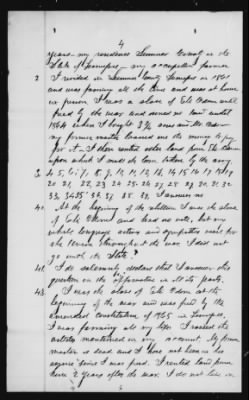 4
years - my residence Sumner County in the
State of Tennessee - my occupation farmer
2 I resided in Sumner County Tennessee in 1861
and was farming all the time and was at home
in person I was a slave of Eli Odom until
freed by the war and owned no land until
1864 when I bought 3 ½ acres
my former master loaned me the money to pay
for it - I then rented other land from Eli Odom
upon which I made the corn taken by the army.
3 4, 5, 6, 7, 8, 9, 10, 11, 12, 13, 14, 15, 16, 17, 18, 19
20 21, 22, 23 24 25 26 27 28 29 30 31 32
33, 34 35 36 37 38 39, I answer no
40. At the beginning of the rebellion I was the slave
of Eli Odom and had no vote, but my
whole language action and sympathies were for
the Union throughout the war I did not
go with the State
41. I do solemnly declare that I answer this
question in the affirmative in all its parts,
43. I was the slave of Eli Odom at the
beginning of the war and was freed by the
amended constitution of 1865 in Tennessee.
I was farming all my life I raised the
articles mentioned in my account. My former
master is dead and I have not been in his
service since I was freed. I rented land from
him 2 years after the war. I do not live on